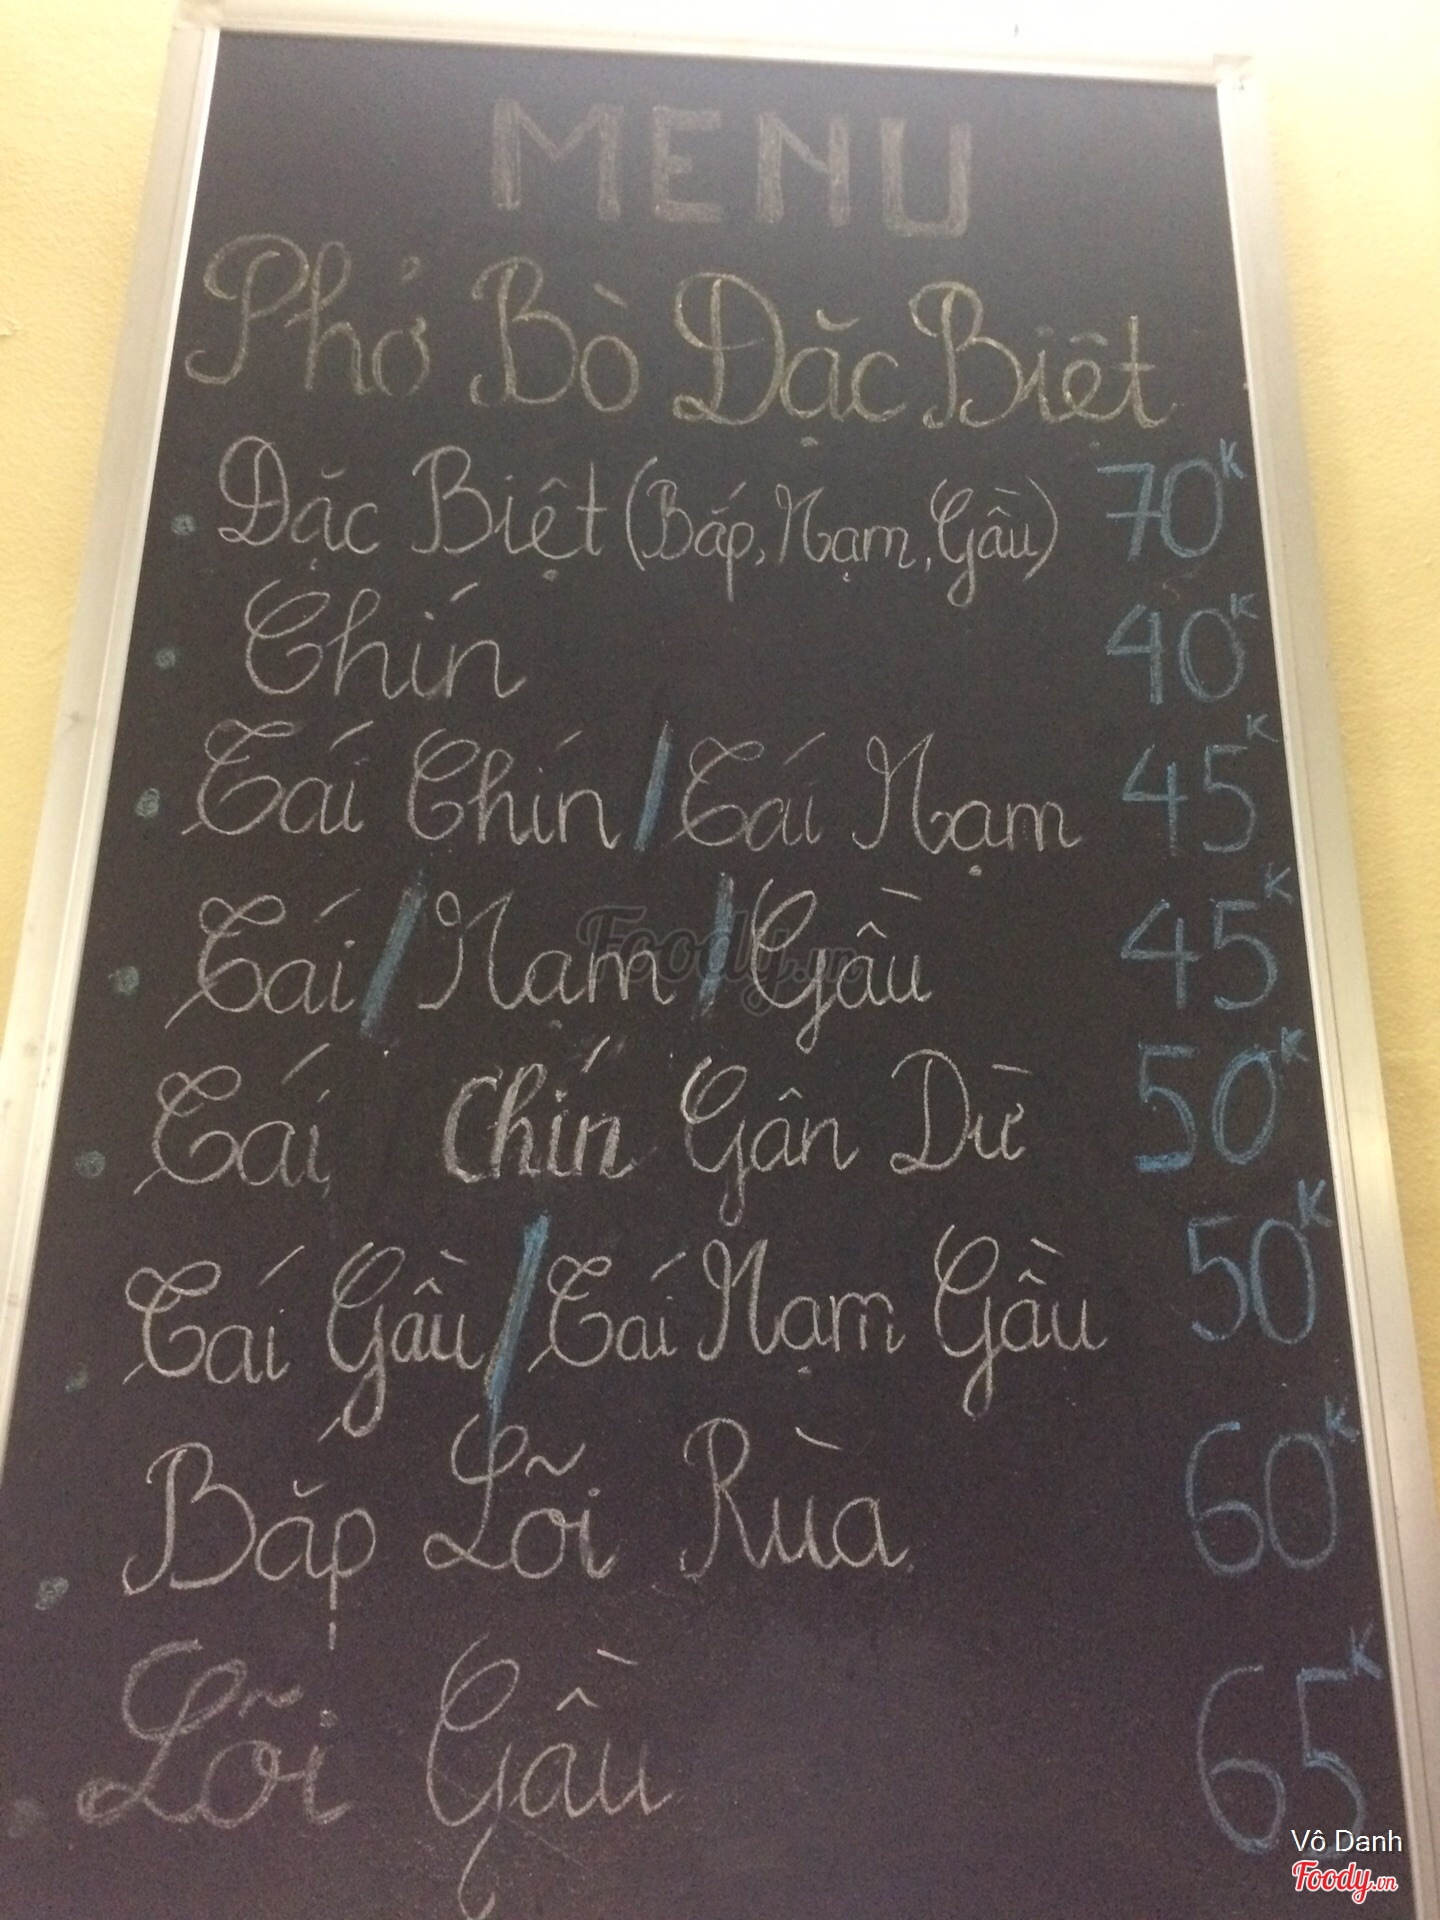 MENU
Phở Bò Đặc Biệt
Đặc Biệt (Bắp, Nạm, Gầu) 70K
Chín 40K
Tái Chín / Tái Nạm 45K
Tái / Nạm / Gầu 45K
Tái Chín Gân Dừ 50K
Tái Gầu / Tái Nạm Gầu 50K
Bắp Lõi Rùa 60K
Lõi Gầu 65K
Foody.vn
Vô Danh
Foody.vn